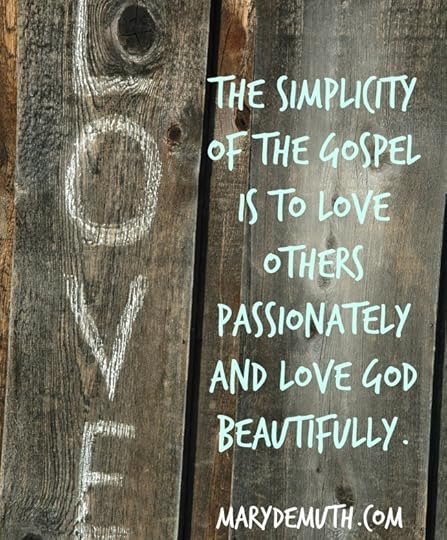 LOVE
THE SIMPLICITY
OF THE GOSPEL
IS TO LOVE
OTHERS
PASSIONATELY
AND LOVE GOD
BEAUTIFULLY.
MARYDEMUTH.COM